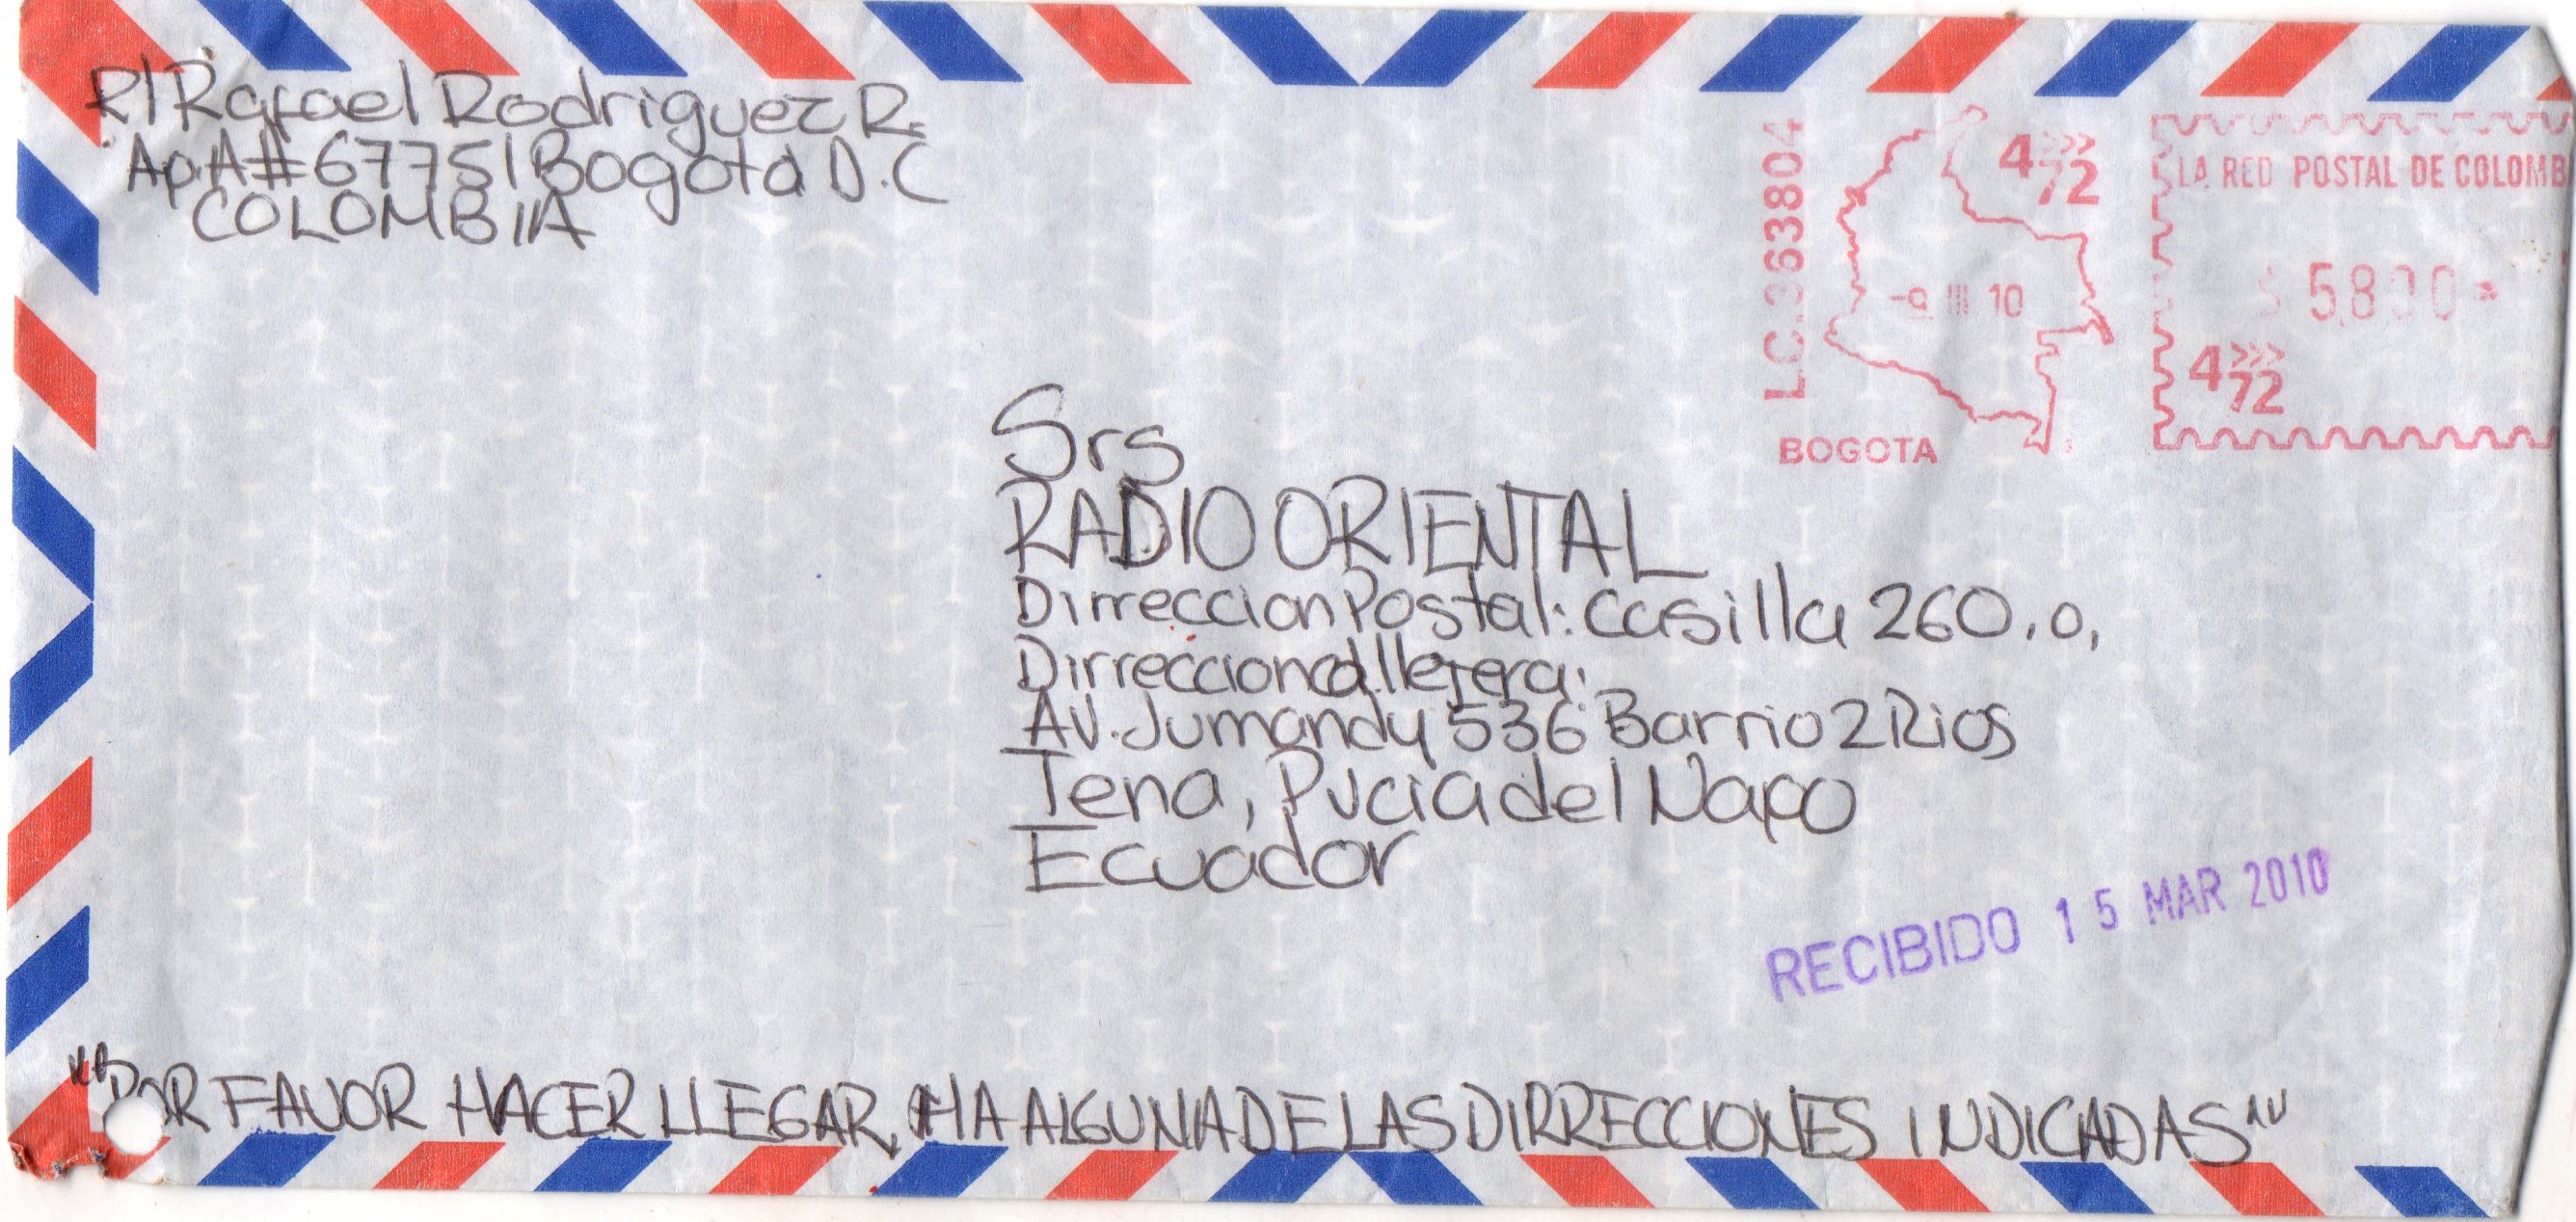 R/ Rafael Rodriguez R.
Ap.A # 67751 Bogota D.C
COLOMBIA
LC.363804
4>>>72
-9 III 10
BOGOTA
LA RED POSTAL DE COLOMB
$ 5,800*
4>>>72
Srs
RADIO ORIENTAL
Dirreccion Postal: Casilla 260.o,
Dirreccion
Av. Jumandy 536 Barrio 2 Rios
Tena, Pvcia del Napo
Ecuador
RECIBIDO 15 MAR 2010
"POR FAVOR HACER LLEGAR, HA ALGUNA DE LAS DIRRECCIONES INDICADAS"